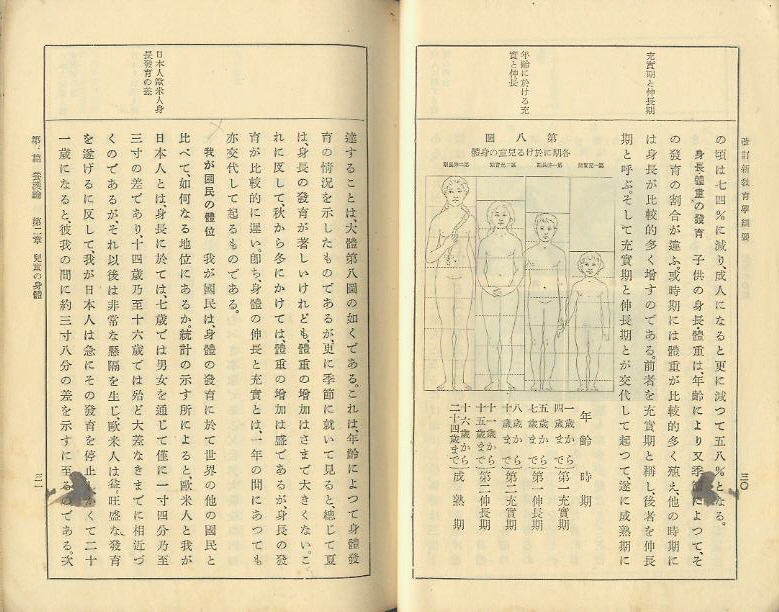 改訂新教育學綱要
三〇
充實期と伸長期
年齡に於ける充
實と伸長
の頃は七四％に減り、成人になると更に減つて五八％となる。
身長體重の發育　子供の身長體重は、年齡により又季節によつて、そ
の發育の割合が違ふ。或時期には體重が比較的多く殖え、他の時期に
は身長が比較的多く增すのである。前者を充實期と稱し、後者を伸長
期と呼ぶ。そして充實期と伸長期とが交代して起つて、遂に成熟期に
第八圖
各期に於ける兒童の身體
第一充實期
第一伸長期
第二充實期
第二伸長期
年齡　時期
一歲から四歲まで　第一充實期
五歲から七歲まで　第一伸長期
八歲から十歲まで　第二充實期
十一歲から十五歲まで　第二伸長期
十六歲から二十四歲まで　成熟期
日本人歐米人身
長發育の差
達することは、大體第八圖の如くである。これは、年齡によつて身體發
育の情況を示したものであるが、更に季節に就いて見ると、總じて夏
は、身長の發育が著しいけれども、體重の增加はさまで大きくない。こ
れに反して、秋から冬にかけては、體重の增加は盛であるが身長の發
育が比較的に遲い。卽ち、身體の伸長と充實とは、一年の間にあつても
亦交代して起るものである。
我が國民の體位　我が國民は、身體の發育に於て世界の他の國民と
比べて、如何なる地位にあるか。統計の示す所によると歐米人と我が
日本人とは、身長に於ては、七歲では男女を通じて僅に一寸四分乃至
三寸の差であり、十四歲乃至十六歲では殆ど大差なきまでに相近づ
くのであるが、それ以後は非常な懸隔を生じ、歐米人は益〻旺盛な發育
を遂げるに反して我が日本人は急にその發育を停止し、かくて二十
一歲になると、彼我の間に約三寸八分の差を示すに至るのである。次
第二篇　養護論　第二章　兒童の身體
三一